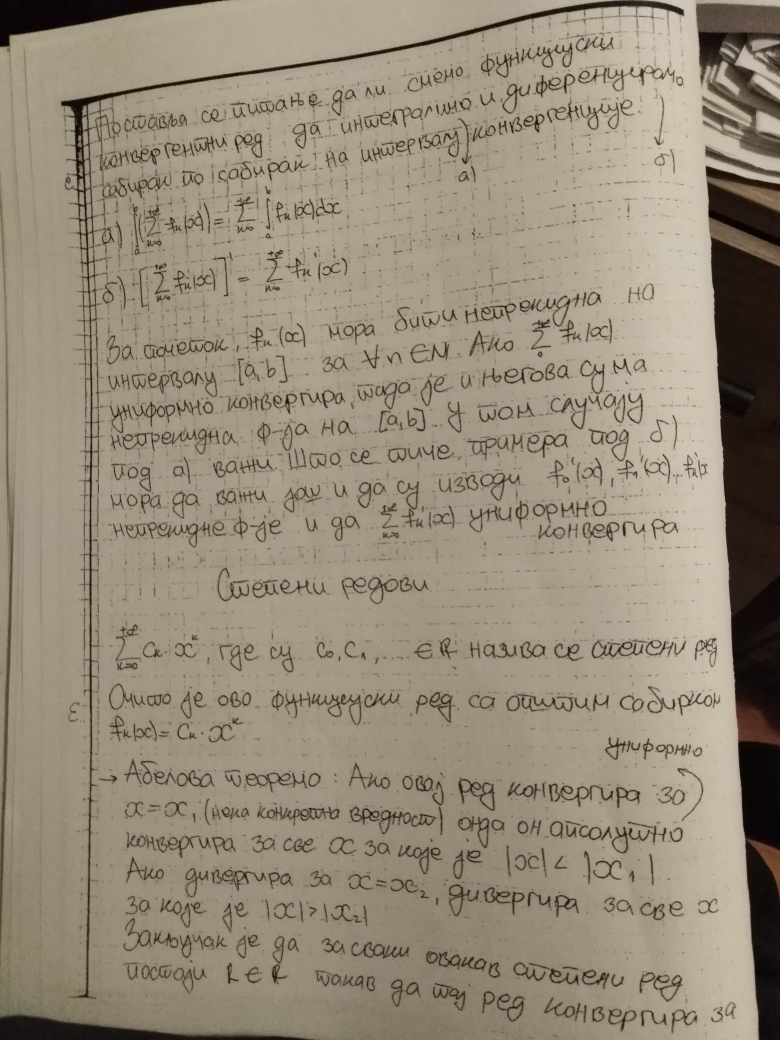 Поставља се питање да ли смемо функцијски
конвергентни ред да интегралимо и диференцирамо
сабирак по сабирак на интервалу конвергенције.
а) б)
а) ∫ₐᵇ(∑ₙ₌₀^{+∞} fₙ(x)) = ∑ₙ₌₀^{+∞} ∫ₐᵇ fₙ(x)dx
б) [∑ₙ₌₀^{+∞} fₙ(x)]' = ∑ₙ₌₀^{+∞} fₙ'(x)
За почетак, fₙ(x) мора бити непрекидна на
интервалу [a,b] за ∀n∈N. Ако ∑₀^{+∞} fₙ(x)
униформно конвергира, тада је и његова сума
непрекидна ф-ја на [a,b]. У том случају
под а) важи. Што се тиче примера под б)
мора да важи још и да су изводи f₀'(x), f₁'(x)...fₙ'(x
непрекидне ф-је и да ∑ₙ₌₀^{+∞} fₙ'(x) униформно
конвергира
Степени редови
∑ₙ₌₀^{+∞} Cₙ·xⁿ, где су C₀, C₁, ... ∈ R назива се степени ред
Очито је ово функцијски ред са општим сабирком
fₙ(x) = Cₙ·xⁿ
униформно
→ Абелова теорема: Ако овај ред конвергира за
x=x₁ (нека конкретна вредност) онда он апсолутно
конвергира за све x за које је |x| < |x₁|.
Ако дивергира за x=x₂, дивергира за све x
за које је |x|>|x₂|
Закључак је да за сваки овакав степени ред
постоји R∈R такав да тај ред конвергира за